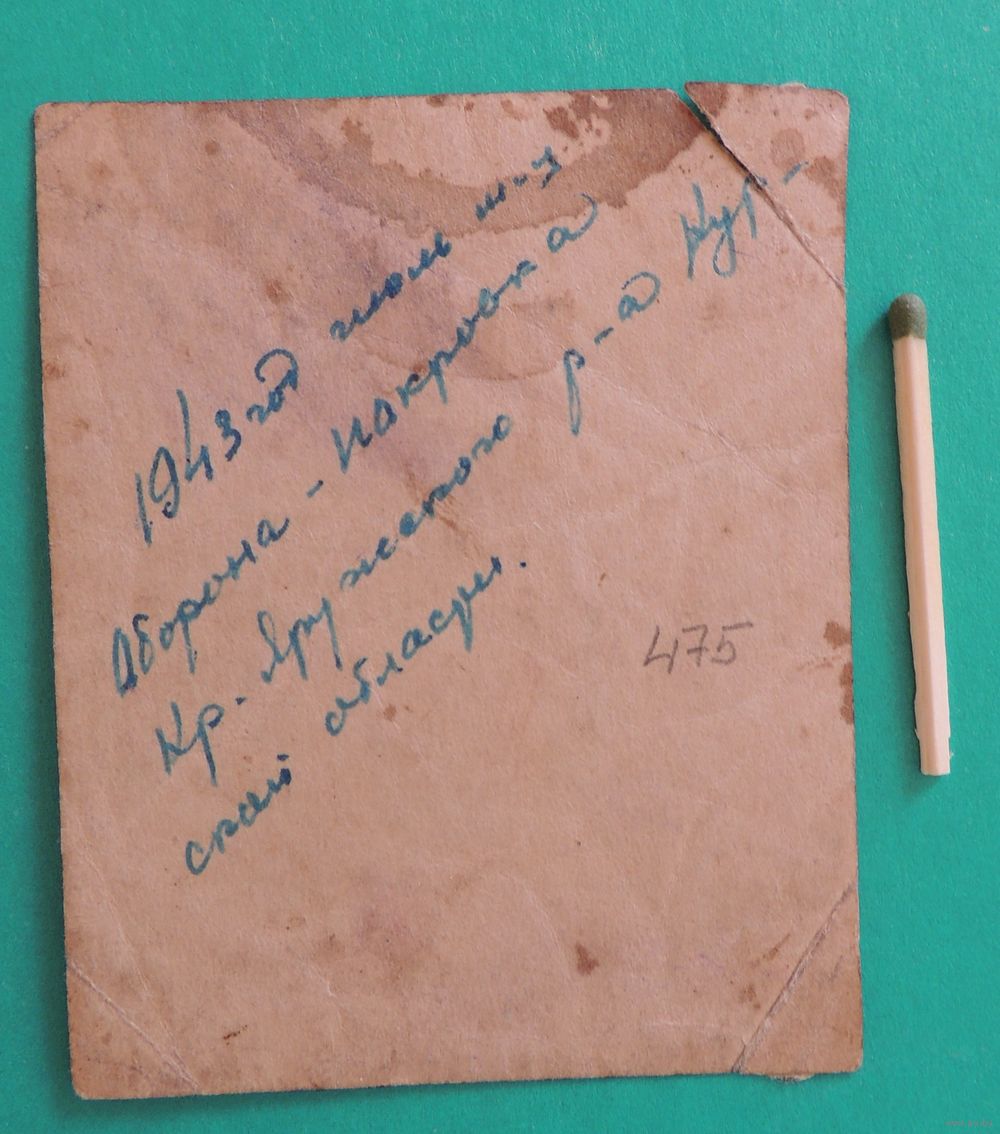 1943 год июль м-ц
Оборона - Покровка
Кр. Яружского р-а Кур-
ской области.
475